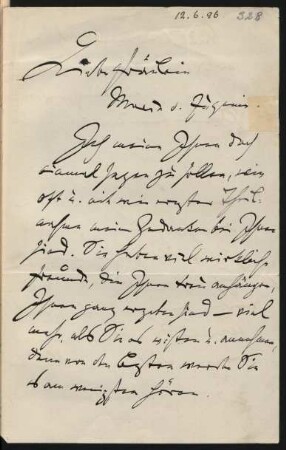 12.6.96 328
Liebes Fräulein
Marie v.
Ich meine Ihnen doch
einmal sagen zu sollen, wie
oft u. mit wie regster Theil-
nahme meine Gedanken bei Ihnen
sind. Sie haben viel wirkliche
Freunde, die Ihnen treu anhängen,
Ihnen ganz ergeben sind – viel
mehr, als Sie es wissen u. annehmen,
denn von den Besten werden Sie
es am wenigsten hören.